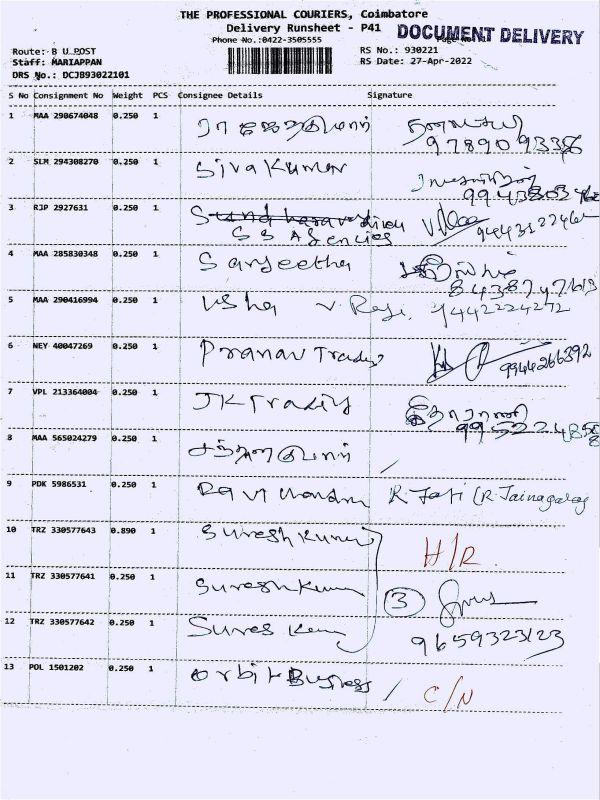 THE PROFESSIONAL COURIERS, Coimbatore
Delivery Runsheet - P41
DOCUMENT DELIVERY
Phone No.:0422-3505555
Route: B U POST
RS No.: 930221
Staff: MARIAPPAN
RS Date: 27-Apr-2022
DRS No.: DCJB93022101
S No Consignment No Weight PCS Consignee Details Signature
1 MAA 290674048 0.250 1 ராஜேந்திரகுமார்
97890 9333
2 SLM 294308270 0.250 1 Siva Kumar
3 RJP 2927631 0.250 1
S S Agencies 9443122462
4 MAA 285830348 0.250 1 Sanjeetha
8438747613
5 MAA 290416994 0.250 1 Usha V. Raja. 9442224272
6 NEY 40047269 0.250 1 Pranav Trades 9944266392
7 VPL 213364004 0.250 1 JK Trading
8 MAA 565024279 0.250 1
9 PDK 5986531 0.250 1 Ravi chandran R. (R. Jainagaraj
10 TRZ 330577643 0.890 1 Suresh Kumar H/R.
11 TRZ 330577641 0.250 1 Suresh Kumar 3
12 TRZ 330577642 0.250 1 Sures Kumar 9659323123
13 POL 1501202 0.250 1 Orbit Business / C/N